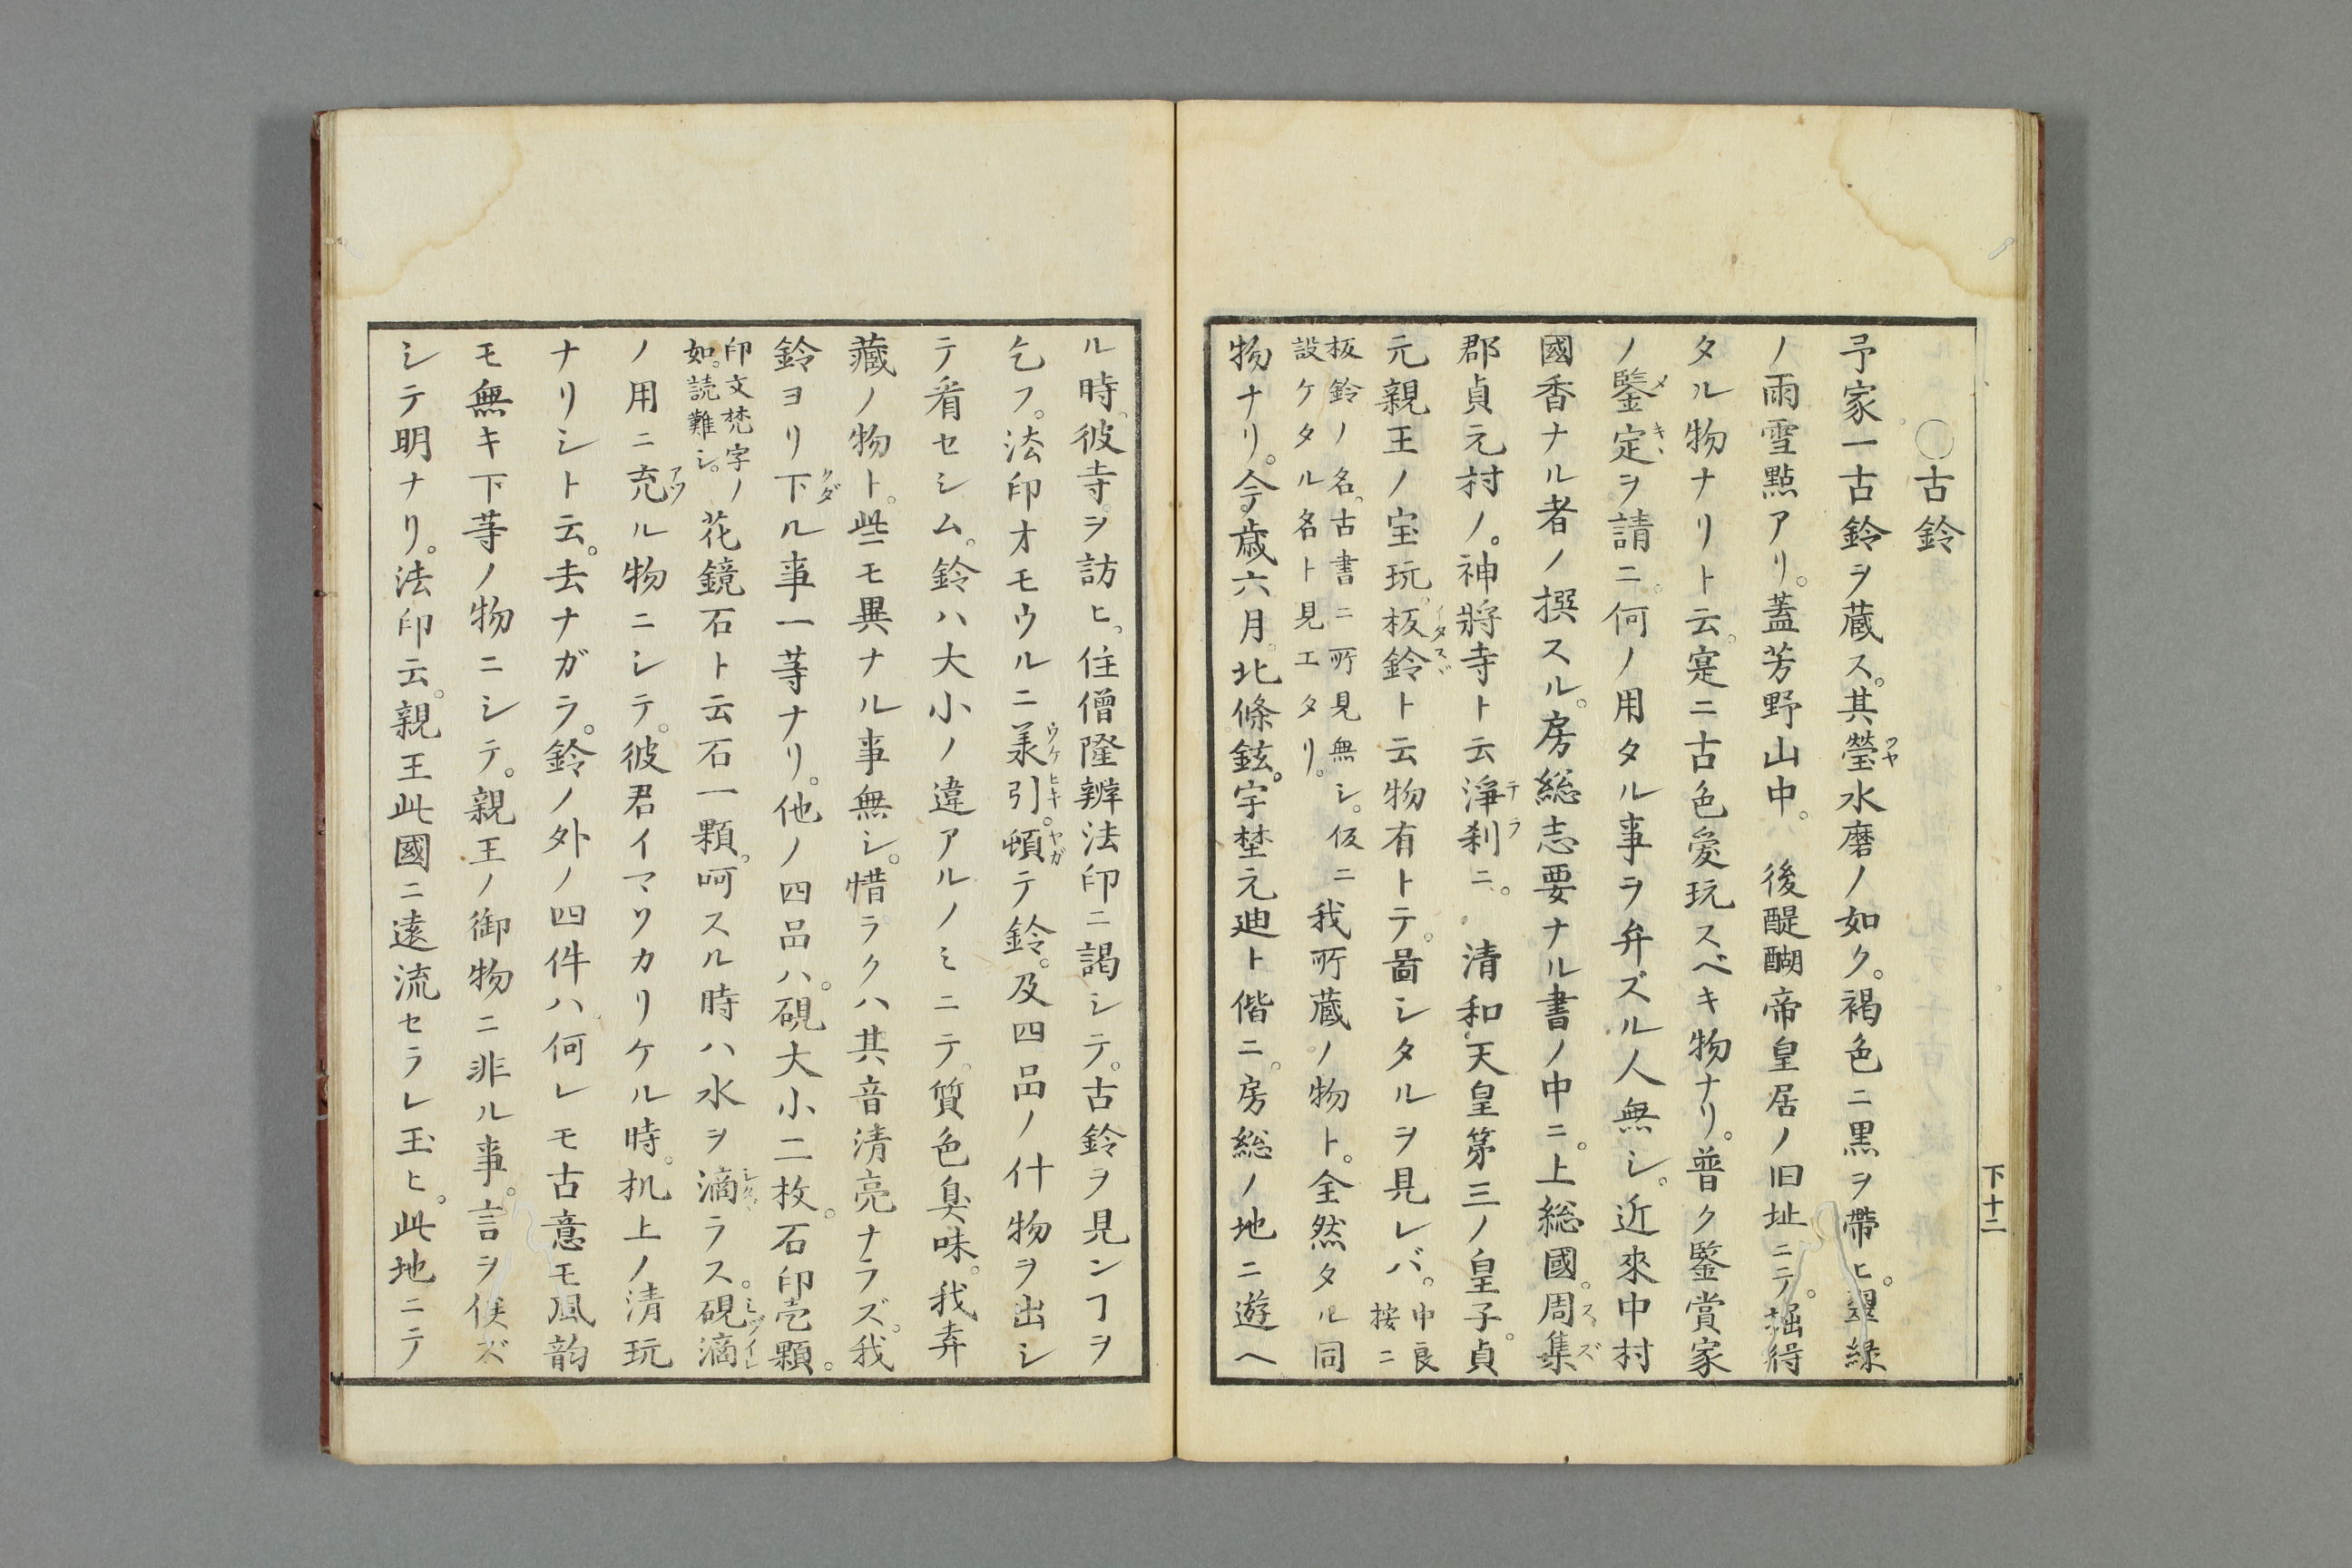 ○古鈴
予家一古鈴ヲ蔵ス。其瑩水磨ノ如ク。褐色ニ黒ヲ帶ヒ。翠緑
ツヤ
ノ雨雪點アリ。蓋芳野山中。後醍醐帝皇居ノ旧址ニテ。掘得
タル物ナリト云。寔ニ古色愛玩スベキ物ナリ。普ク鑒賞家
ノ鑒定ヲ請ニ。何ノ用タル事ヲ弁ズル人無シ。近來中村
メキヽ
國香ナル者ノ撰スル。房総志要ナル書ノ中ニ。上総國。周集
スズ
郡貞元村ノ。神將寺ト云淨刹ニ。清和天皇第三ノ皇子。貞
テラ
元親王ノ宝玩。板鈴ト云物有トテ。啚シタルヲ見レバ。中良按ニ
イタスヾ
板鈴ノ名。古書ニ所見無シ。仮ニ
設ケタル名ト見エタリ。我所蔵ノ物ト。全然タル同
物ナリ。今歳六月。北條鉉。宇埜元廸ト偕ニ。房総ノ地ニ遊ヘ
下十二
ル時。彼寺ヲ訪ヒ。住僧隆辨法印ニ謁シテ。古鈴ヲ見ンヿヲ
乞フ。法印オモウルニ羕引。頓テ鈴。及四品ノ什物ヲ出シ
ウケヒキ ヤガ
テ看セシム。鈴ハ大小ノ違アルノミニテ。質色臭味。我弆
藏ノ物ト。些モ異ナル事無シ。惜ラクハ其音清亮ナラズ。我
鈴ヨリ下ル事一䓁ナリ。他ノ四品ハ。硯大小二枚。石印壱顆。
クダ
印文梵字ノ
如。読難シ。花鏡石ト云石一顆。呵スル時ハ水ヲ滴ラス。硯滴
シタヽ ミヅイレ
ノ用ニ充ル物ニシテ。彼君イマソカリケル時。机上ノ清玩
アツ
ナリシト云。去ナガラ。鈴ノ外ノ四件ハ何レモ古意モ風韵
モ無キ下䓁ノ物ニシテ。親王ノ御物ニ非ル事。言ヲ俟ズ
シテ明ナリ。法印云。親王此國ニ遠流セラレ玉ヒ。此地ニテ